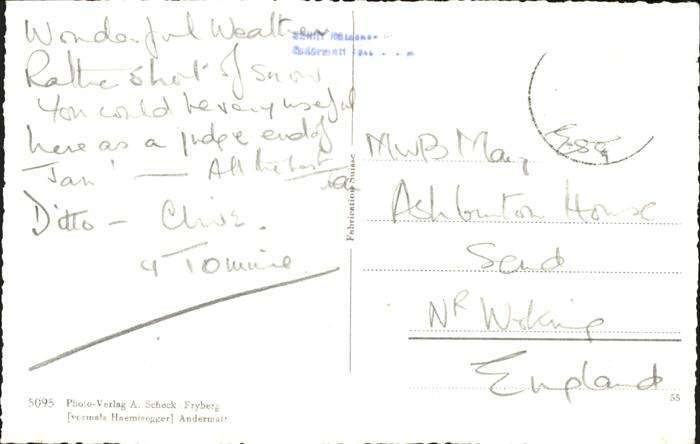 Wonderful Weather
Rather short of snow
You could be very useful
here as a judge end of
Jan' — All the best
Ditto — Clive.
& Tommie
Fabrication Suisse
M W B May, Esq
Ashburton House
Send
Nr Woking
England
5095 Photo-Verlag A. Scheck Fryberg
[vormals Haemisegger] Andermatt
55